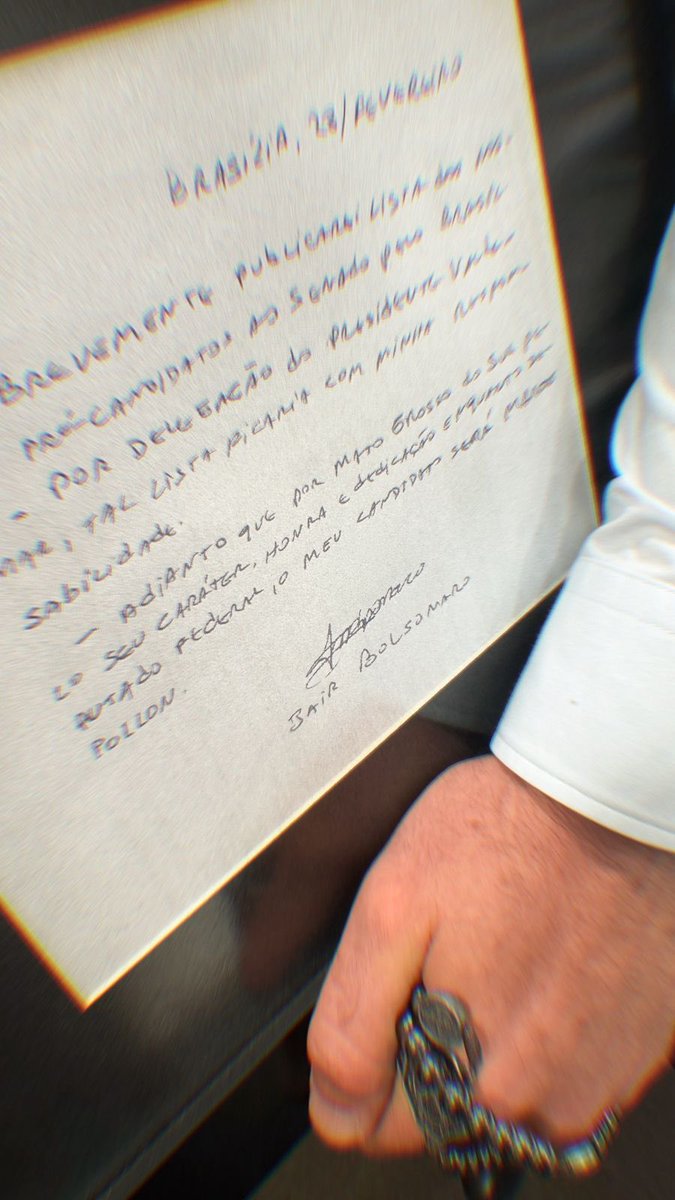 BRASÍLIA, 28/FEVEREIRO
BREVEMENTE PUBLICAREI LISTA DOS
PRÉ-CANDIDATOS AO SENADO PELO BRASIL
- POR DELEGAÇÃO DO PRESIDENTE VALDE-
MAR, TAL LISTA FICARIA COM MINHA RESPON-
SABILIDADE.
- ADIANTO QUE POR MATO GROSSO DO SUL, PE-
LO SEU CARÁTER, HONRA E DEDICAÇÃO ENQUANTO DE-
PUTADO FEDERAL, O MEU CANDIDATO SERÁ MARCOS
POLLON.
JAIR BOLSONARO